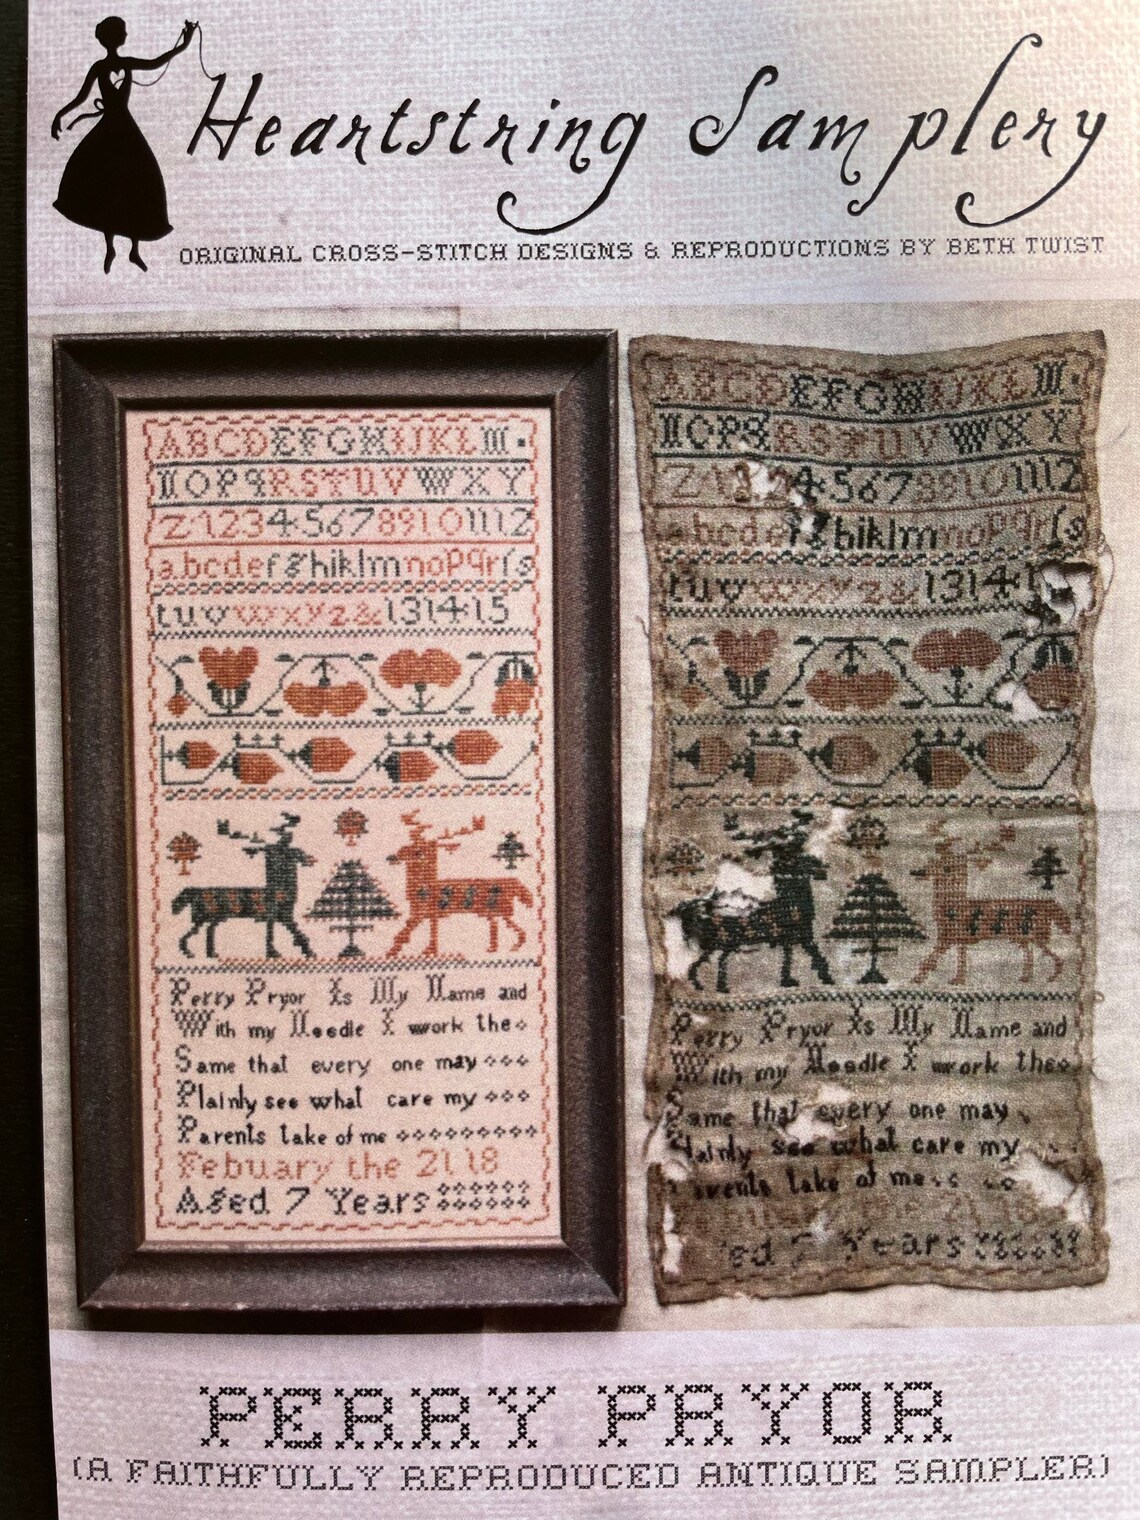 Heartstring Samplery
ORIGINAL CROSS-STITCH DESIGNS & REPRODUCTIONS BY BETH TWIST
ABCDEFGHIJKLM.
NOPQRSTUVWXY
Z123456789101112
abcdefghiklmnopqrſs
tuvwxyz&131415
Perry Pryor Is My Name and
With my Needle I work the
Same that every one may
Plainly see what care my
Parents take of me
Febuary the 21 18
Aged 7 Years
ABCDEFGHIJKLM.
NOPQRSTUVWXY
Z 456789101112
abcdefghiklmnopqrſs
tuvwxyz&1314
Perry Pryor Is My Name and
With my Needle I work the
ame that every one may
lainly see what care my
arents take of me
the 21 18
ed 7 Years
PERRY PRYOR
(A FAITHFULLY REPRODUCED ANTIQUE SAMPLER)